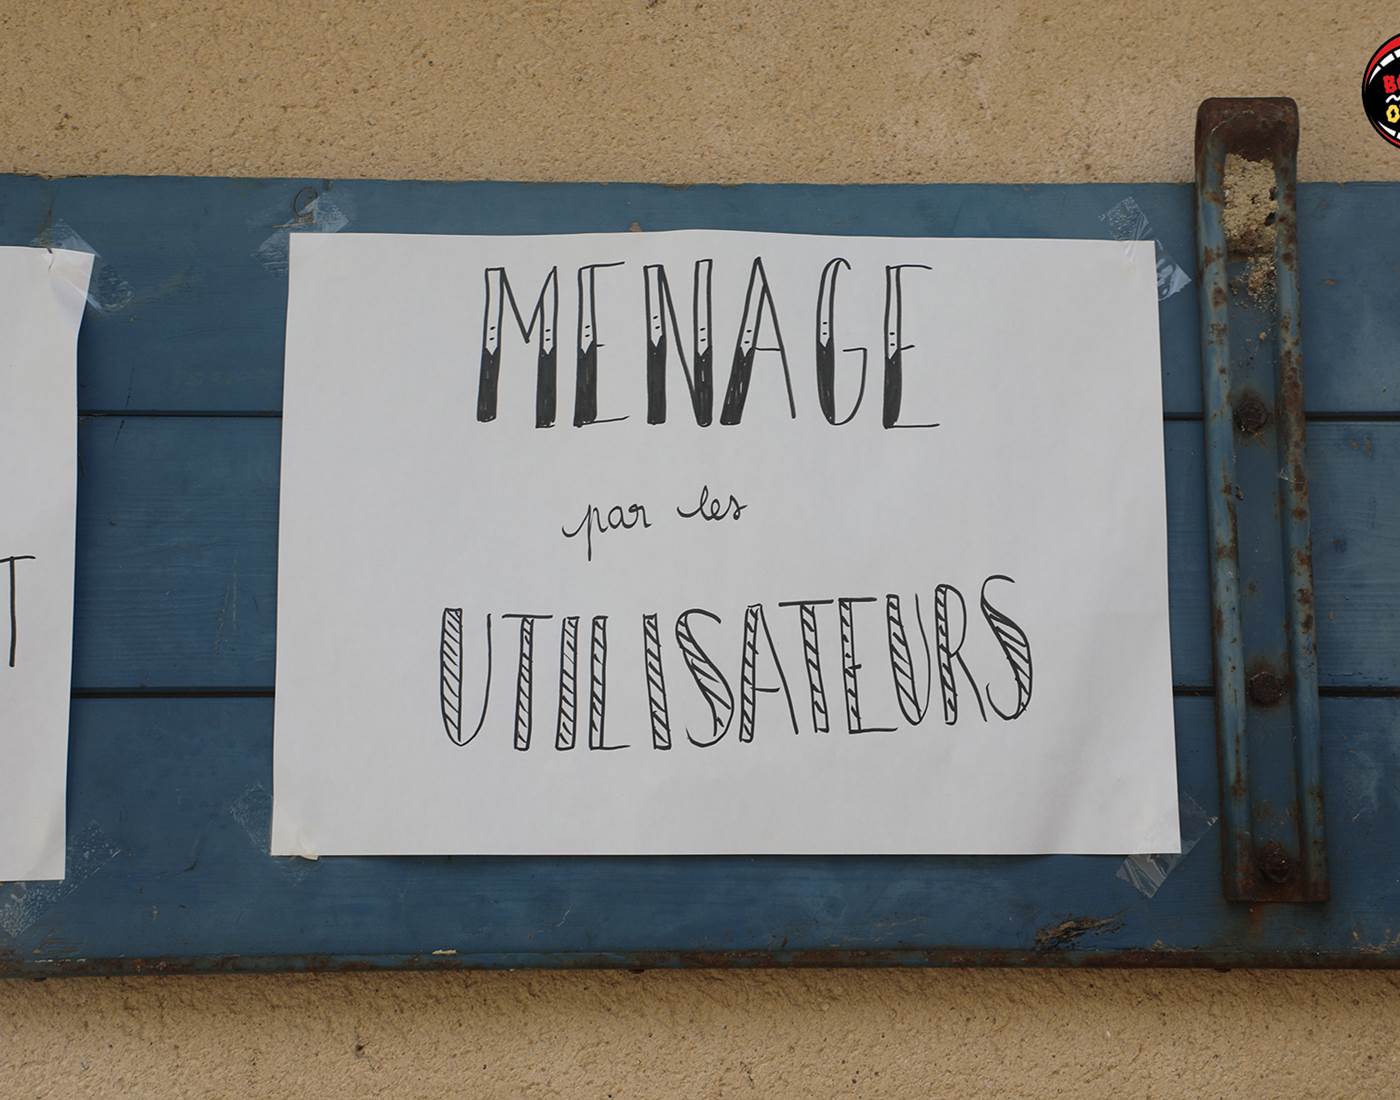 MENAGE
par les
UTILISATEURS
T